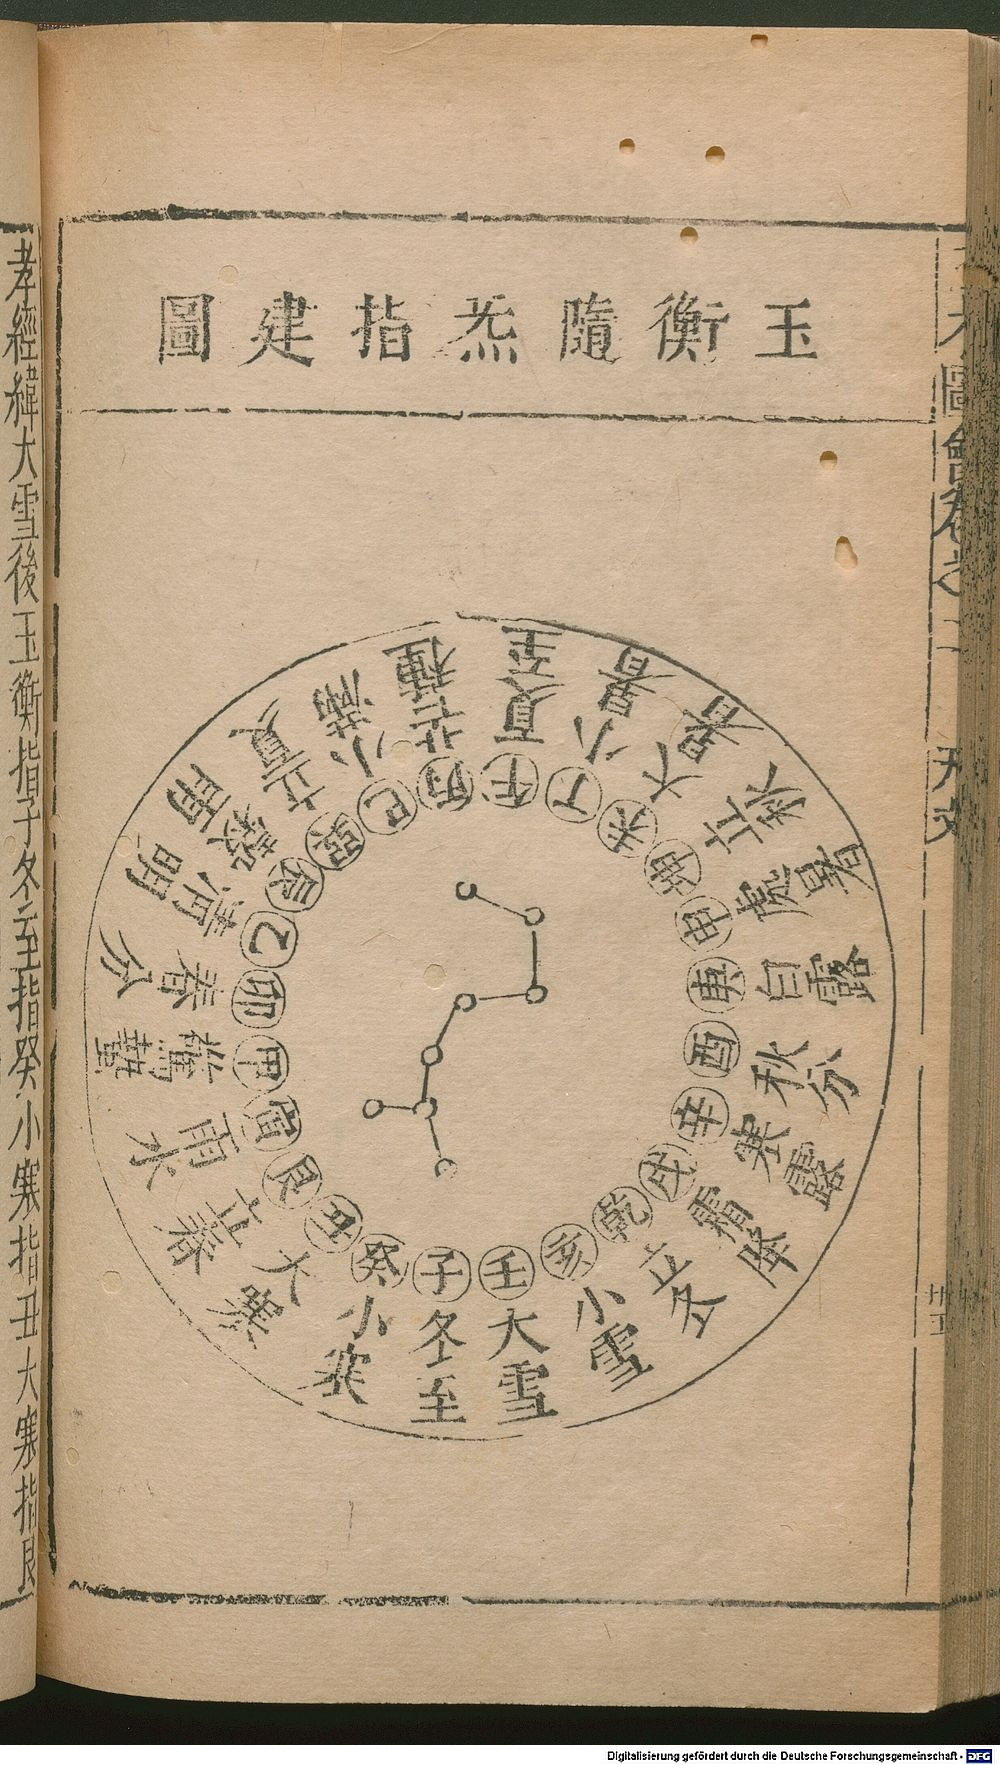 圖會卷之
天文
玉衡隨炁指建圖
子冬至
癸小寒
丑大寒
艮立春
寅雨水
甲驚蟄
卯春分
乙清明
辰穀雨
巽立夏
巳小滿
丙芒種
午夏至
丁小暑
未大暑
坤立秋
申處暑
庚白露
酉秋分
辛寒露
戌霜降
乾立冬
亥小雪
壬大雪
孝經緯大雪後玉衡指子冬至指癸小寒指丑大寒指艮
Digitalisierung gefördert durch die Deutsche Forschungsgemeinschaft - DFG